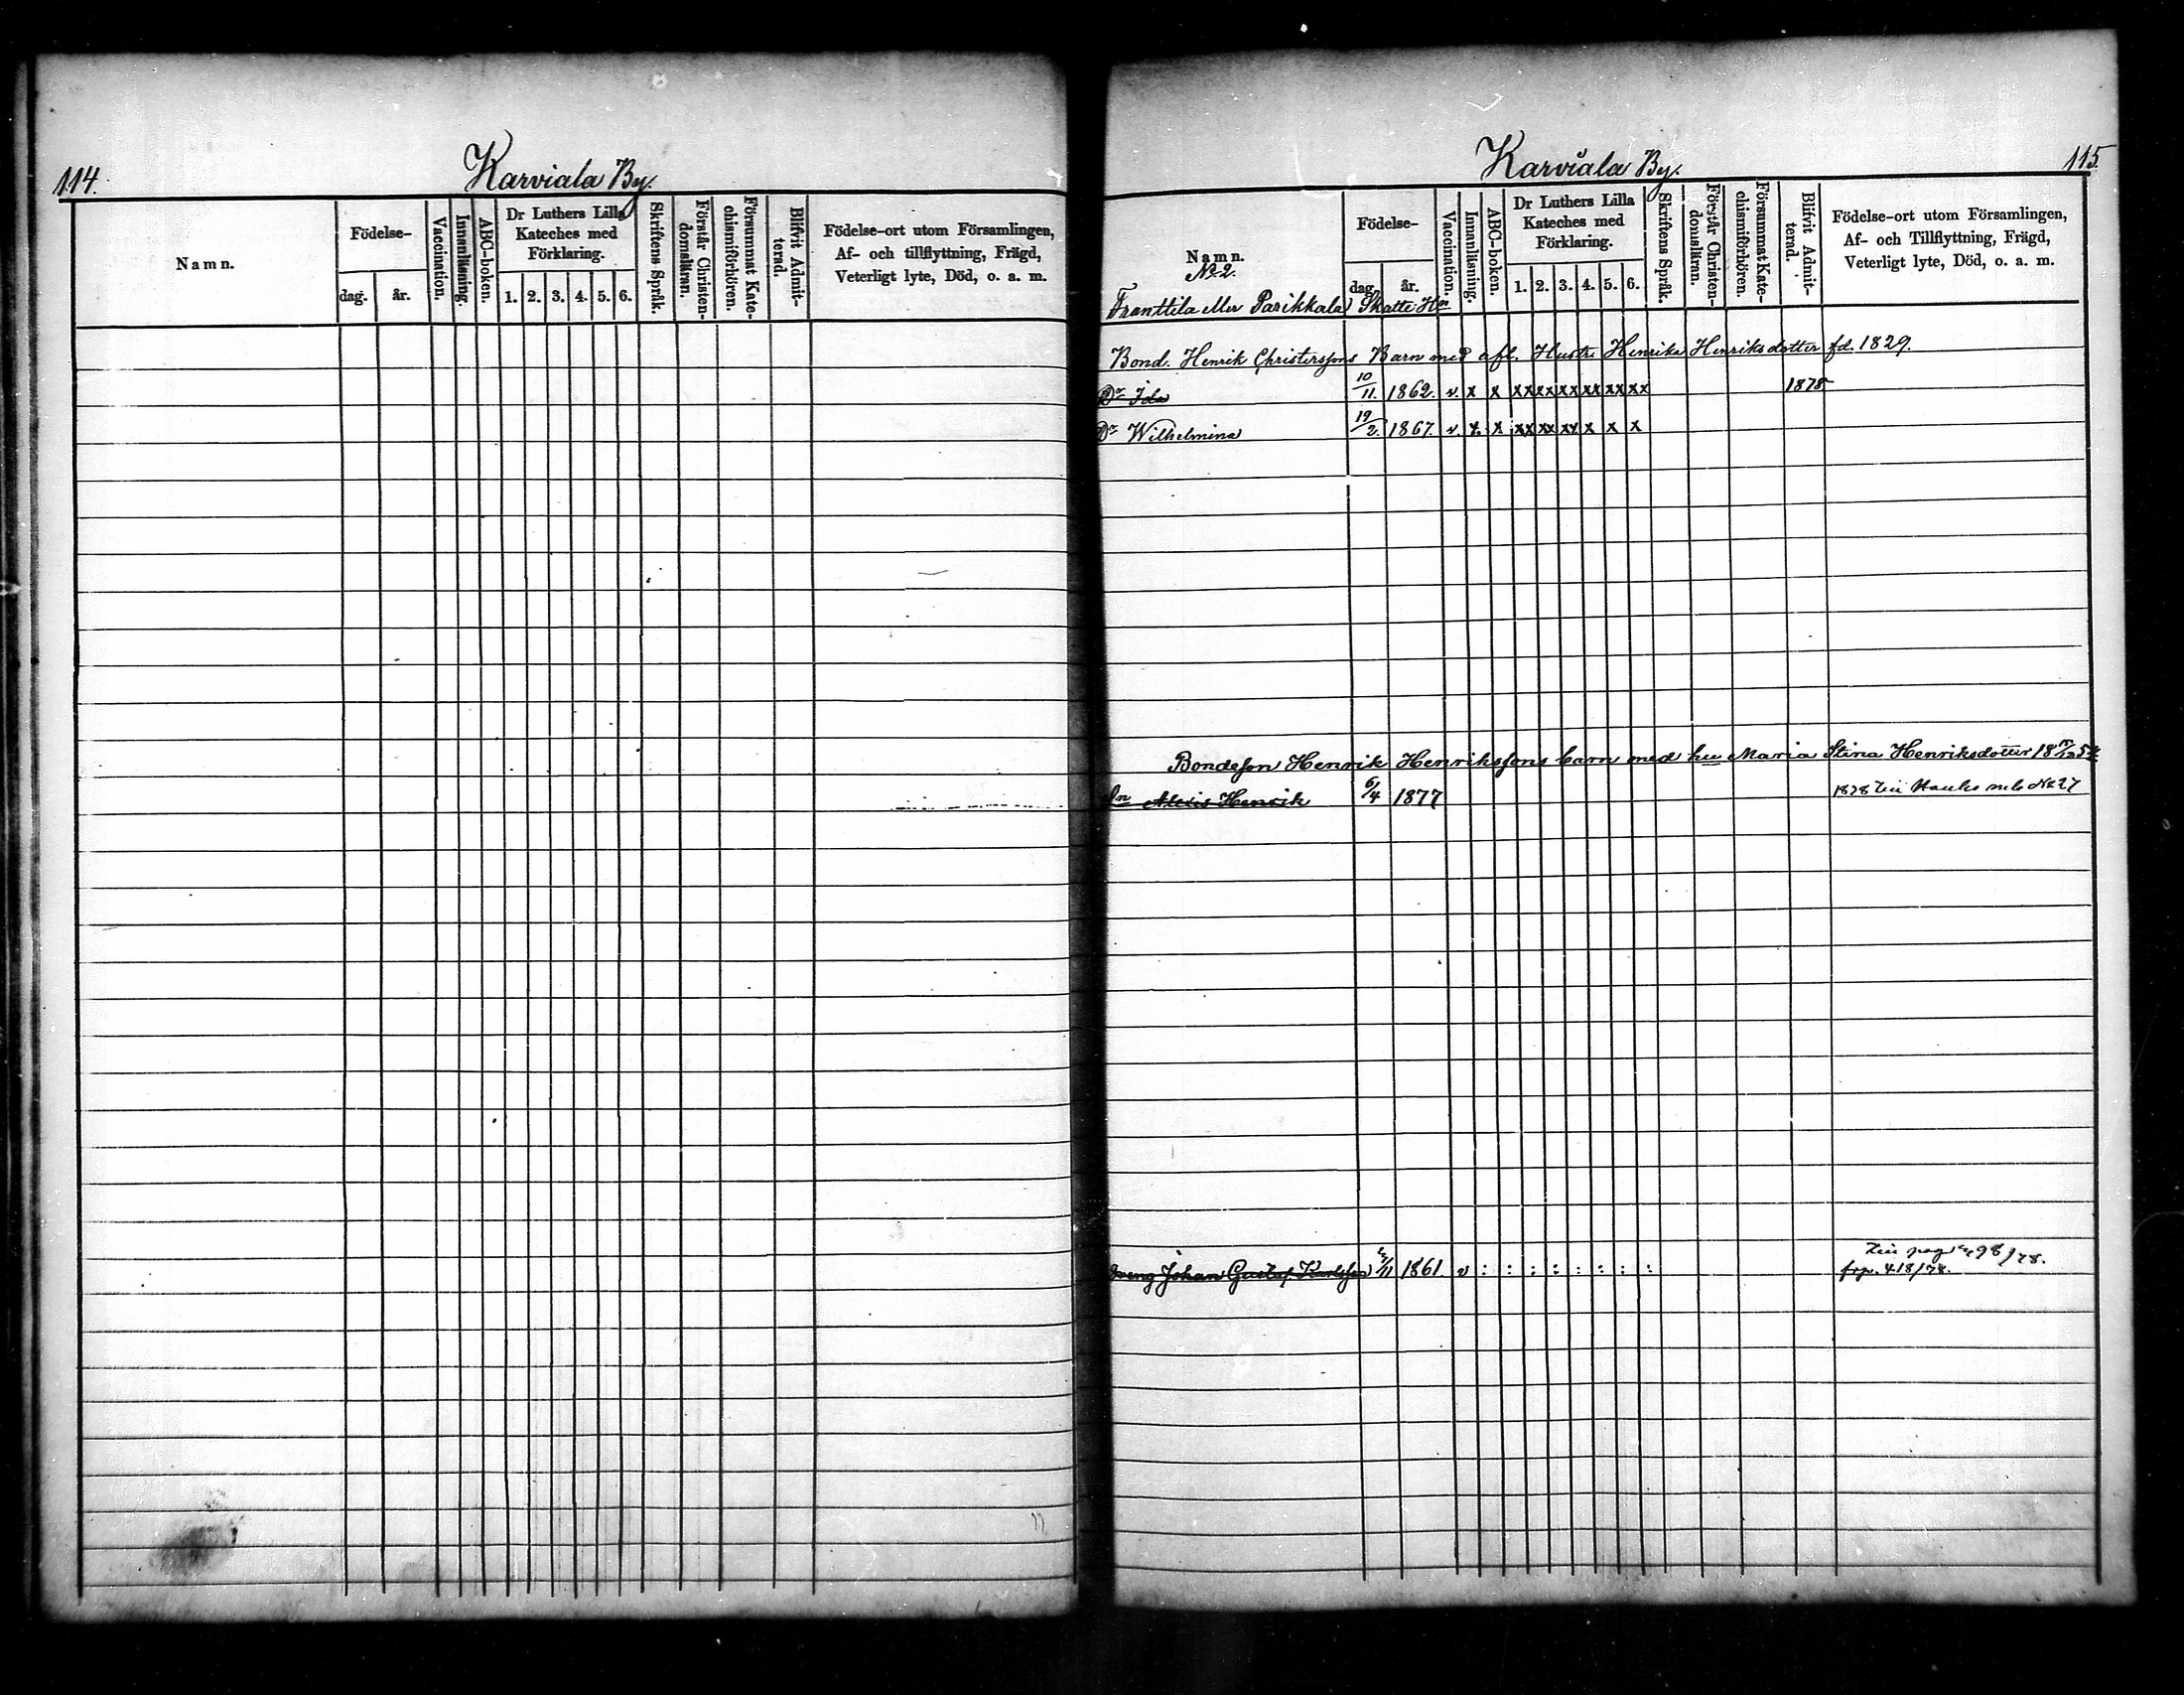 114.
Karviala By.
Namn.
Födelse-
dag.
år.
Vaccination.
Innanläsning.
ABC-boken.
Dr Luthers Lilla
Kateches med
Förklaring.
1. 2. 3. 4. 5. 6.
Skriftens Språk.
Förstår Christen-
domsläran.
Försummat Kate-
chismiförhören.
Blifvit Admit-
terad.
Födelse-ort utom Församlingen,
Af- och tillflyttning, Frägd,
Veterligt lyte, Död, o. a. m.
Karviala By.
115.
Namn.
Födelse-
dag.
år.
Vaccination.
Innanläsning.
ABC-boken.
Dr Luthers Lilla
Kateches med
Förklaring.
1. 2. 3. 4. 5. 6.
Skriftens Språk.
Förstår Christen-
domsläran.
Försummat Kate-
chismiförhören.
Blifvit Admit-
terad.
Födelse-ort utom Församlingen,
Af- och Tillflyttning, Frägd,
Veterligt lyte, Död, o. a. m.
No 2.
Franttila eller Parikkala Skatte Hn
Bond. Henrik Christerssons Barn med afl. Hustr. Henrika Henriksdotter fd. 1829.
Dr Ida 10/11. 1862. v. x x xx xx xx xx xx xx 1878
Dr Wilhelmina 19/2. 1867. v. x. x xx xx xx x x x
Bondeson Henrik Henrikssons barn med hu Maria Stina Henriksdotter
Sn Alexis Henrik 6/4 1877 1878 No 27
Dreng Johan Gustaf Karlsson 1861 v : : : : : : : :
frp. 418/78.